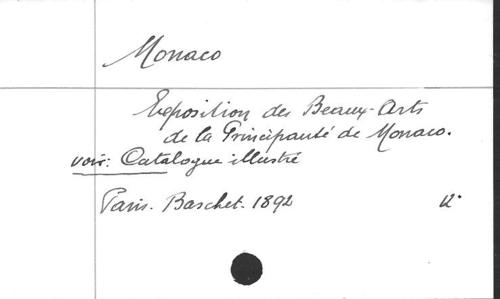 Monaco
Exposition des Beaux-Arts
de la Principauté de Monaco.
voir: Catalogue illustré
Paris. Baschet. 1892 12°